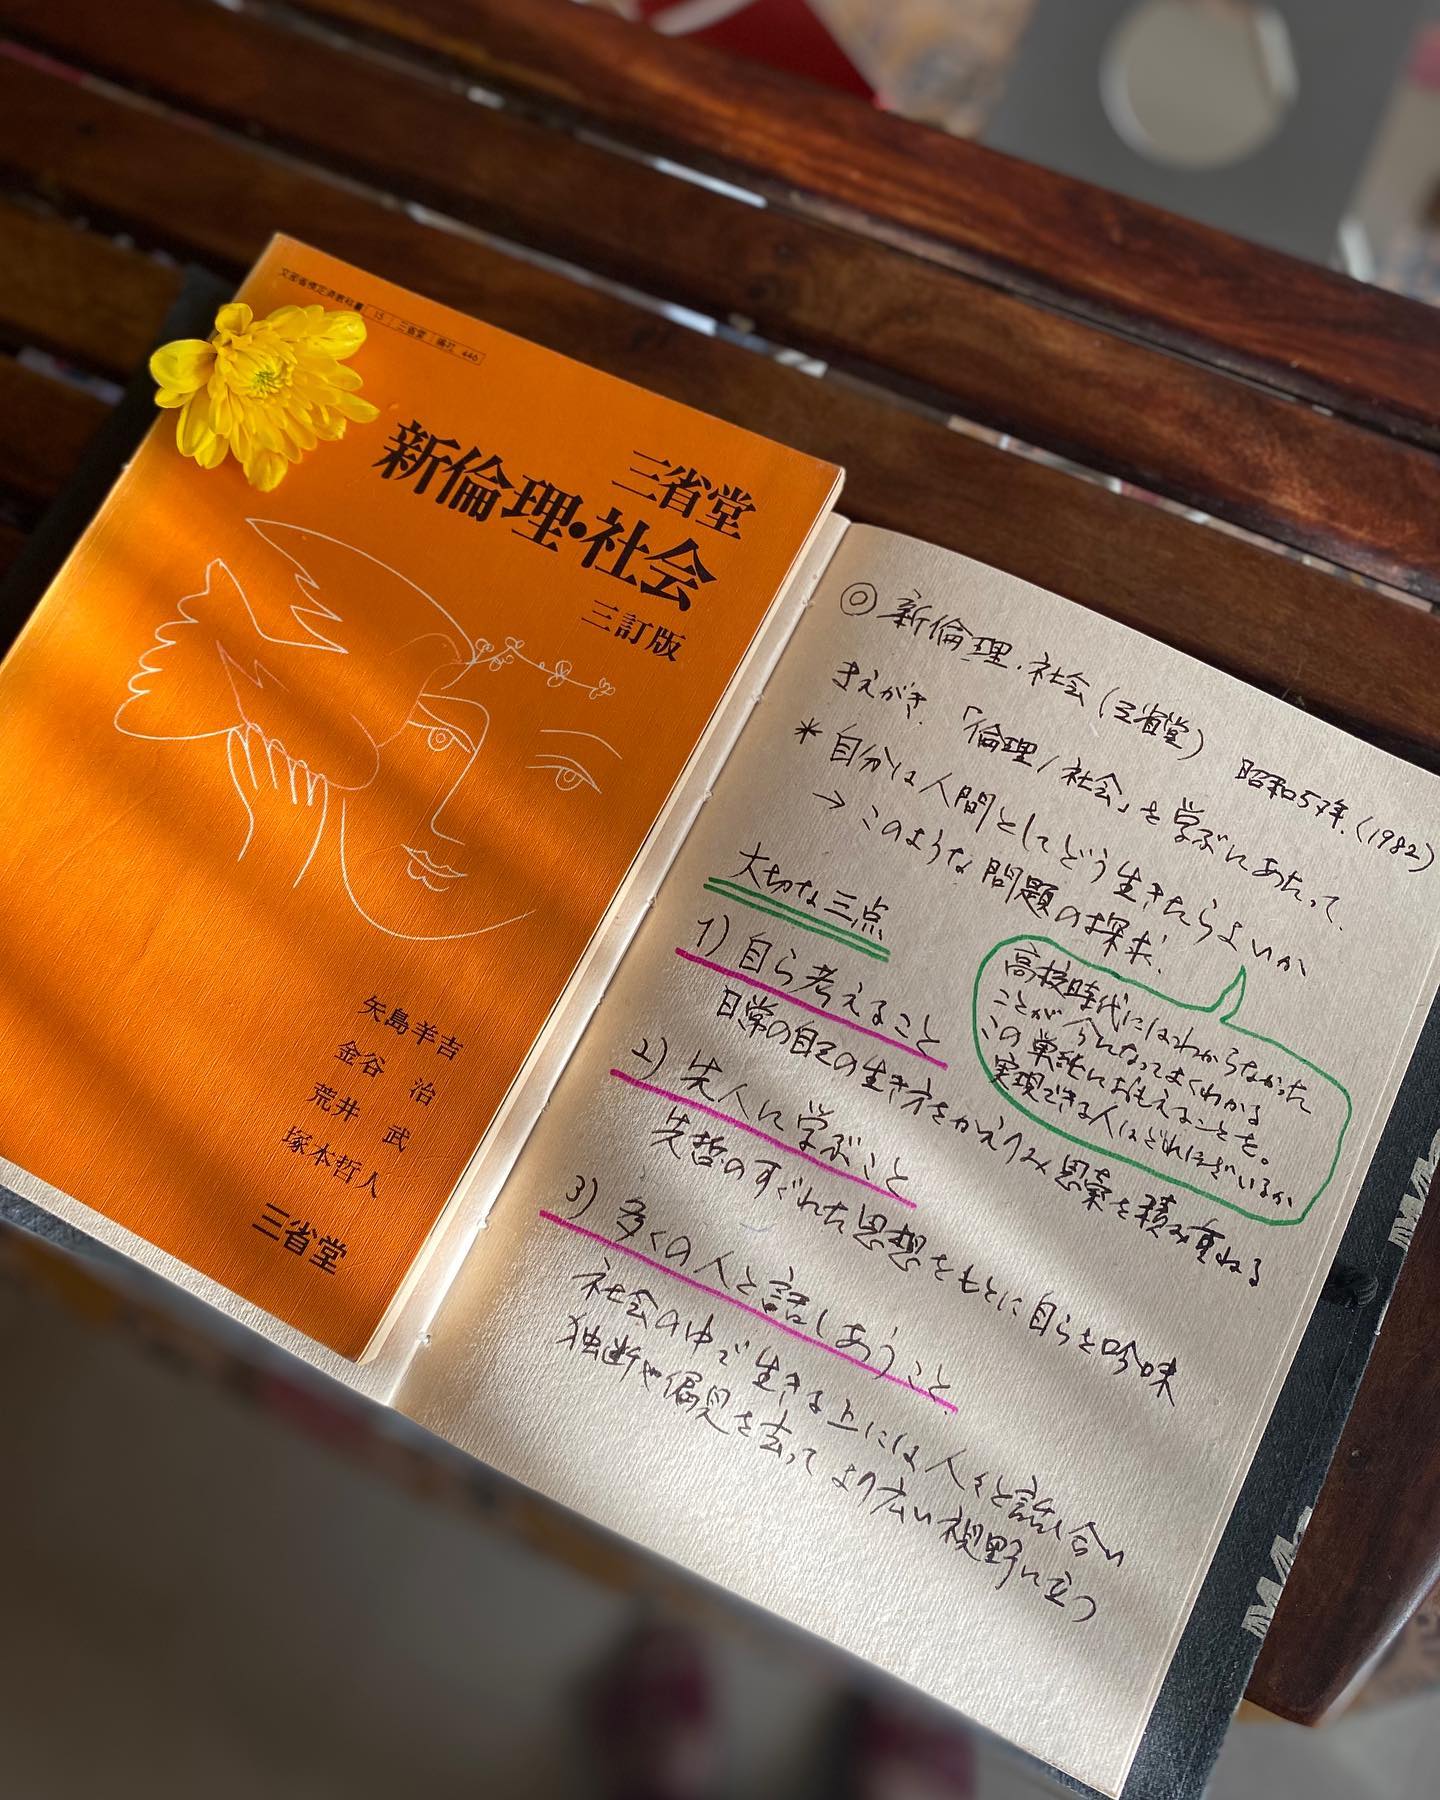 文部省検定済教科書 15 三省堂 倫社 446
三省堂
新倫理・社会
三訂版
矢島羊吉
金谷 治
荒井 武
塚本哲人
三省堂
◎新倫理・社会(三省堂) 昭和57年.(1982)
まえがき.「倫理/社会」を学ぶにあたって.
*自分は人間としてどう生きたらよいか
→このような問題の探求.
大切な三点
高校時代にはわからなかった
ことが今になってよくわかる
この単純におもえることを。
実現できる人はどれほどいるか
1)自ら考えること
日常の自己の生き方をかえりみ思索を積み重ねる
2)先人に学ぶこと
先哲のすぐれた思想をもとに自らを吟味
3)多くの人と話しあうこと.
社会の中で生きる上には人々と話し合い
独断や偏見を去ってより広い視野に立つ